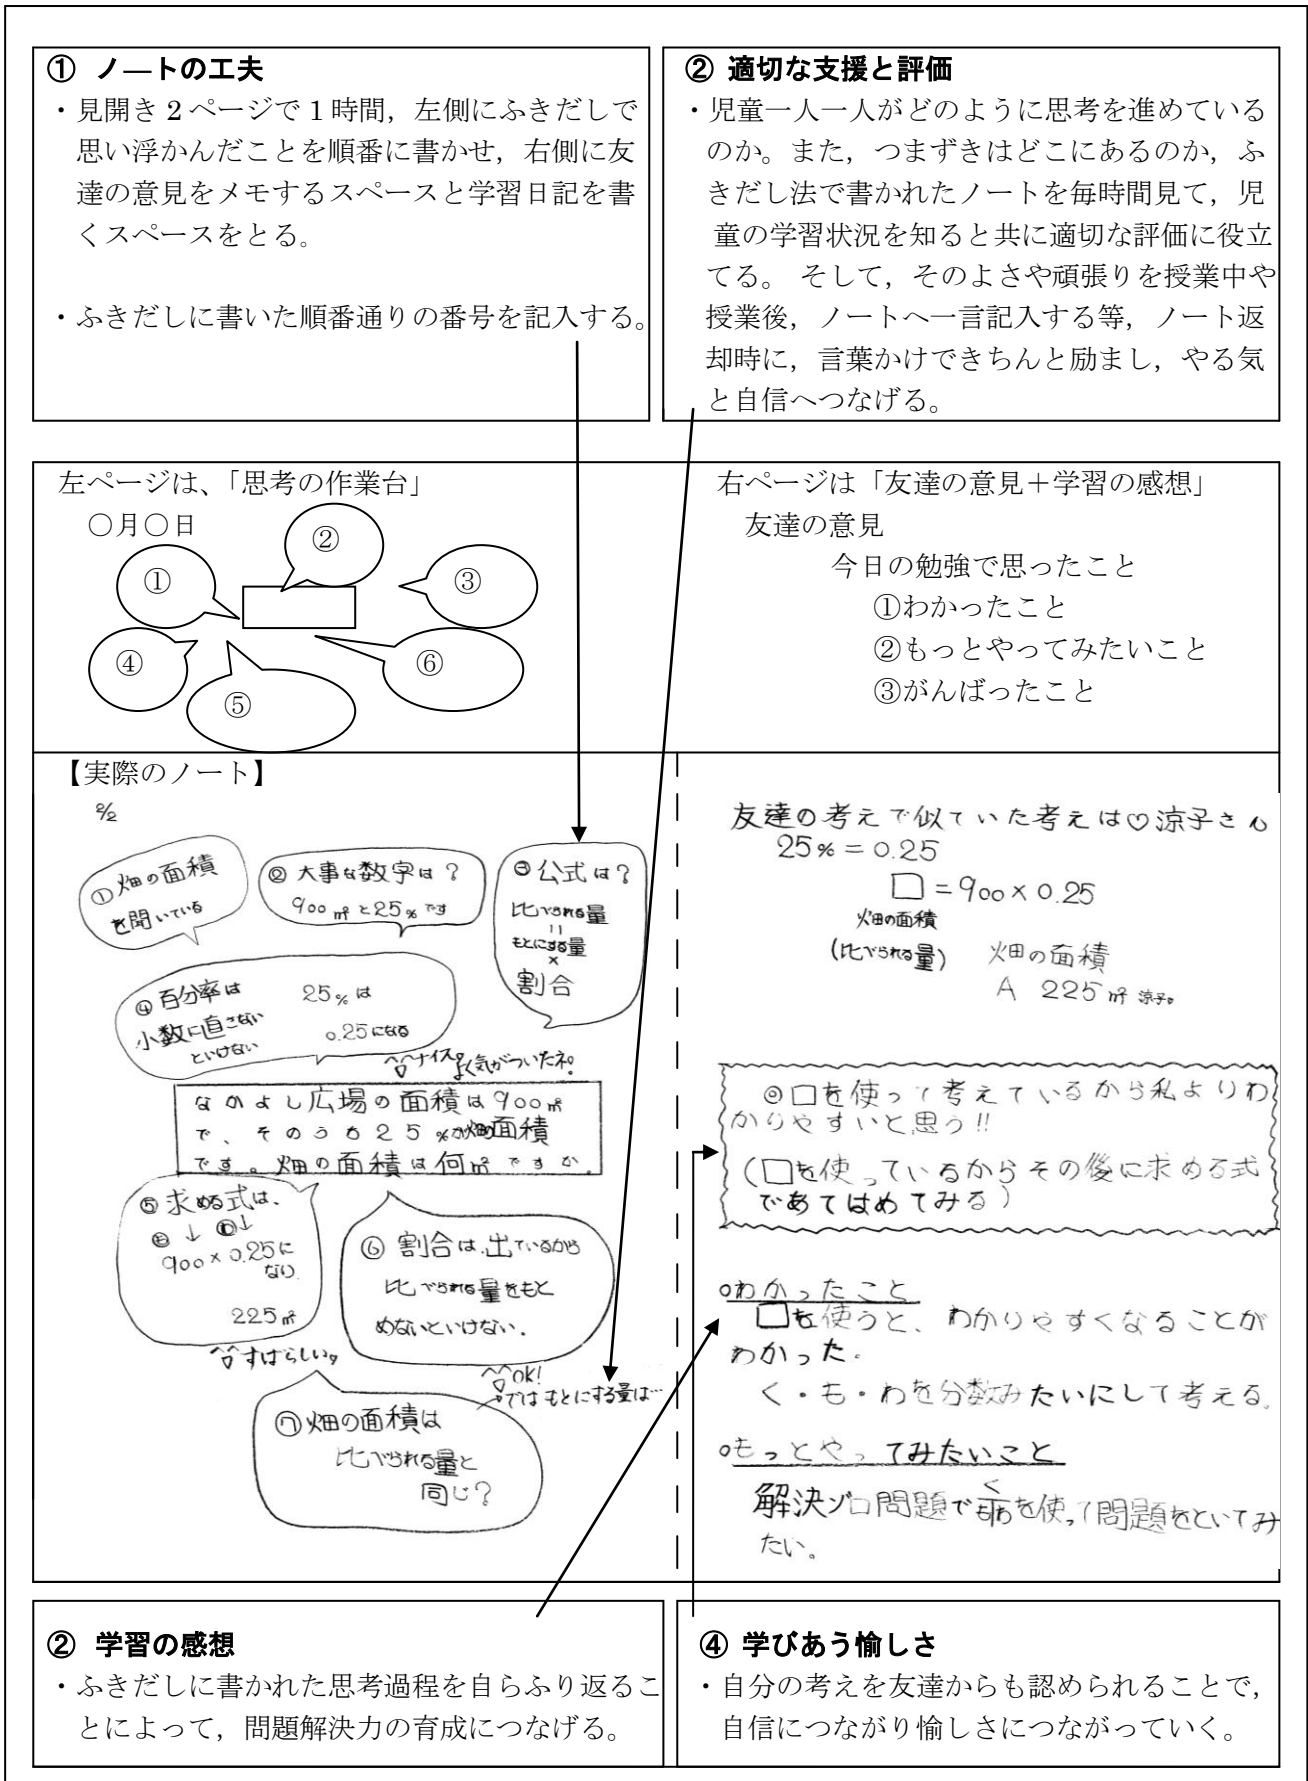 ① ノ―トの工夫
・見開き2ページで1時間，左側にふきだしで
思い浮かんだことを順番に書かせ，右側に友
達の意見をメモするスペースと学習日記を書
くスペースをとる。
・ふきだしに書いた順番通りの番号を記入する。
② 適切な支援と評価
・児童一人一人がどのように思考を進めている
のか。また，つまずきはどこにあるのか，ふ
きだし法で書かれたノートを毎時間見て，児
童の学習状況を知ると共に適切な評価に役立
てる。 そして，そのよさや頑張りを授業中や
授業後，ノートへ一言記入する等，ノート返
却時に，言葉かけできちんと励まし，やる気
と自信へつなげる。
左ページは、「思考の作業台」
○月○日
①
②
③
④
⑤
⑥
右ページは「友達の意見＋学習の感想」
友達の意見
今日の勉強で思ったこと
①わかったこと
②もっとやってみたいこと
③がんばったこと
【実際のノート】
2/2
①畑の面積
を聞いている
② 大事な数字は？
900㎡と25%です
③公式は？
比べられる量
=
もとにする量
×
割合
④百分率は 25%は
小数に直さない
といけない 0.25になる
ナイス。よく気がついたネ。
なかよし広場の面積は900㎡
で、そのうち25%が畑の面積
です。畑の面積は何㎡ですか
⑤求める式は、
も↓ わ↓
900×0.25に
なり
225㎡
すばらしい。
⑥ 割合は、出ているから
比べられる量をもと
めないといけない.
OK!
では もとにする量は…
⑦畑の面積は
比べられる量と
同じ？
友達の考えで似ていた考えは♡涼子さん
25%=0.25
□=900×0.25
畑の面積
(比べられる量)
畑の面積
A 225㎡ 涼子。
◎□を使って考えているから私よりわ
かりやすいと思う!!
(□を使っているからその後に求める式
であてはめてみる)
○わかったこと
□を使うと、わかりやすくなることが
わかった.
く・も・わを分数みたいにして考える.
○もっとやってみたいこと
解決ゾロ問題で を使って問題をといてみ
たい。
② 学習の感想
・ふきだしに書かれた思考過程を自らふり返るこ
とによって，問題解決力の育成につなげる。
④ 学びあう愉しさ
・自分の考えを友達からも認められることで，
自信につながり愉しさにつながっていく。